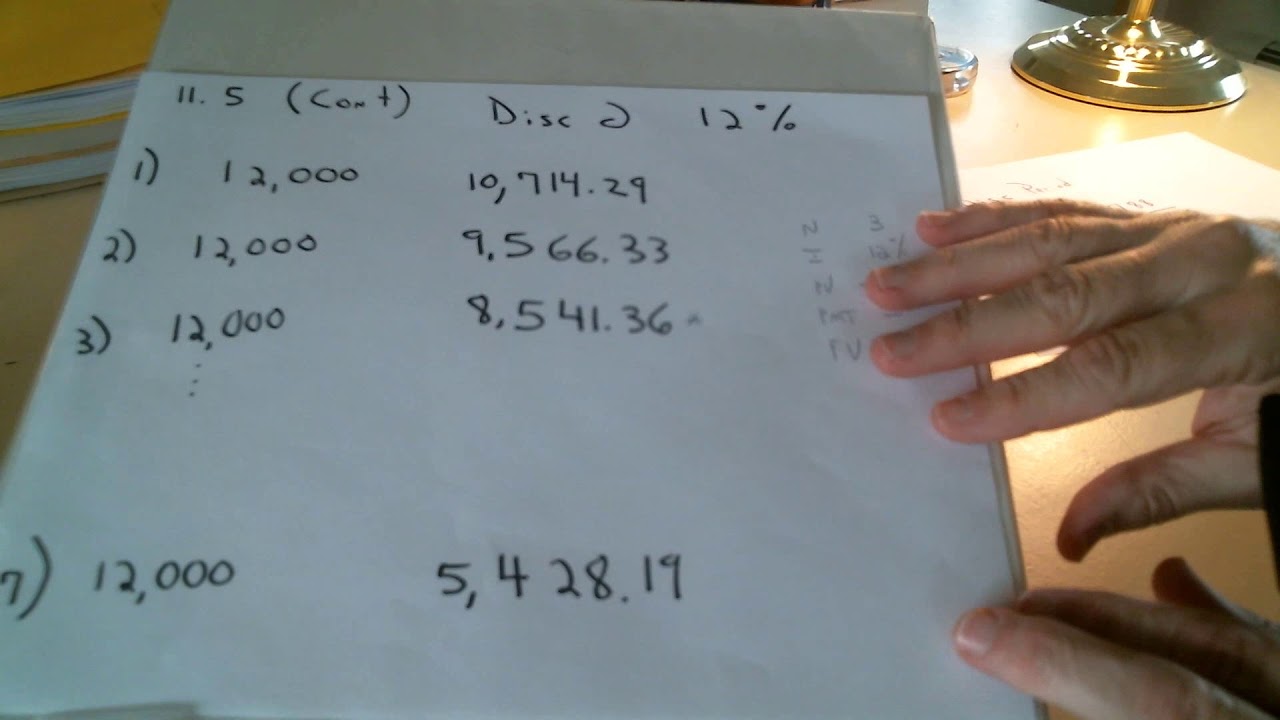 11.5 (Cont) Disc @ 12%
1) 12,000 10,714.29
2) 12,000 9,566.33
3) 12,000 8,541.36
⋮
7) 12,000 5,428.19
N 3
I 12%
N
PMT
FV